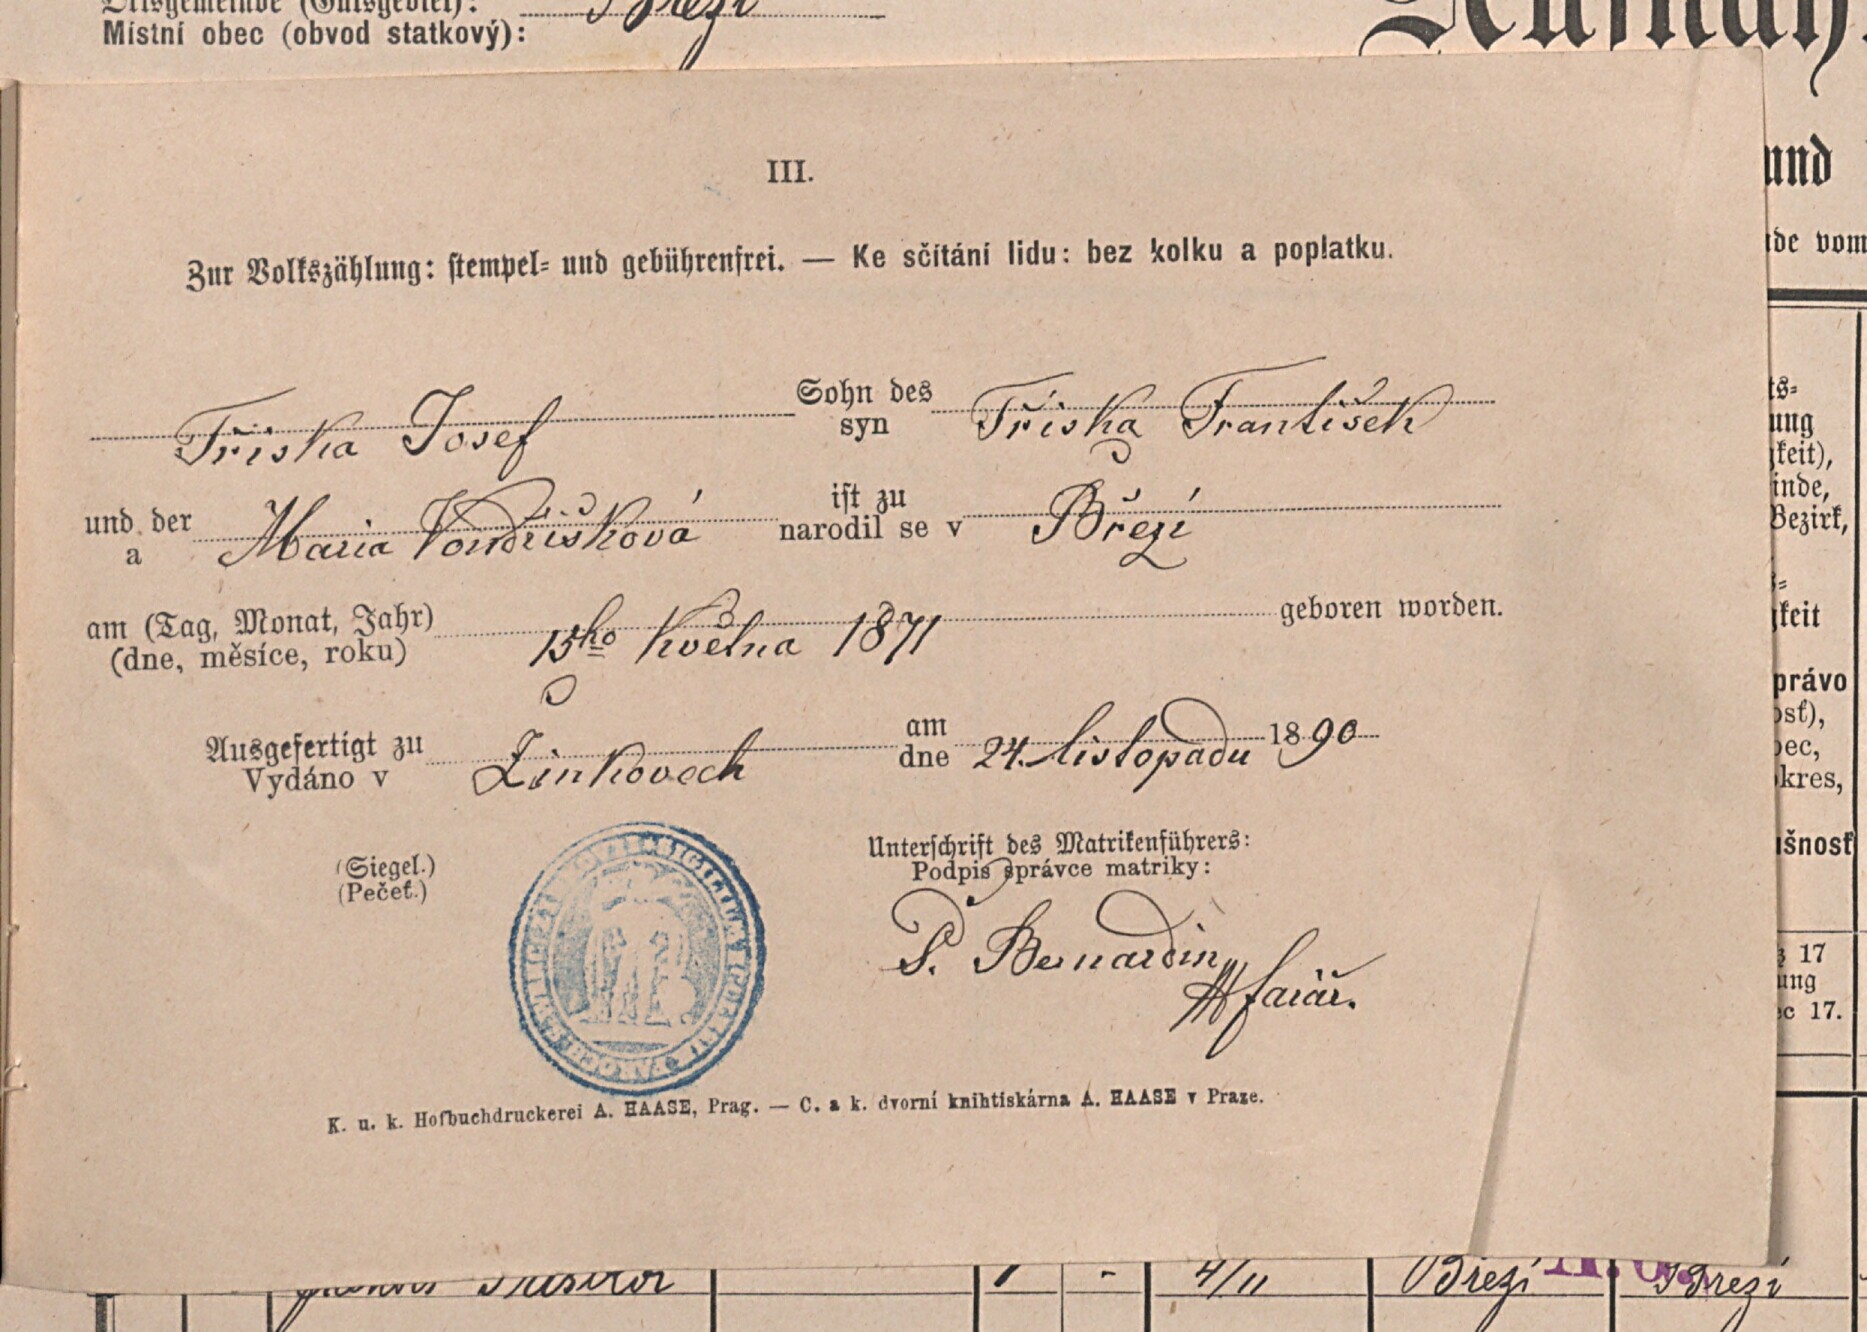 Ortsgemeinde (Gutsgebiet): Březí
Místní obec (obvod statkový):
und
de vom
III.
Zur Volkszählung: stempel= und gebührenfrei. — Ke sčítání lidu: bez kolku a poplatku.
Tříska Josef Sohn des
syn Tříska František
und der
a Maria Vondřišková ist zu
narodil se v Březí
am (Tag, Monat, Jahr) 15ho Května 1871 geboren worden.
(dne, měsíce, roku)
Ausgefertigt zu
Vydáno v Žinkovech am
dne 24. listopadu 1890
(Siegel.)
(Pečeť.)
Unterschrift des Matrikenführers:
Podpis správce matriky:
P. Bernardin
farář.
K. u. k. Hofbuchdruckerei A. HAASE, Prag. — C. a k. dvorní knihtiskárna A. HAASE v Praze.
ts=
ung
keit),
inde,
Bezirk,
keit
právo
ost),
ec,
kres,
ušnost
17
ung
ec 17.
1 - 4/11 Březí Březí